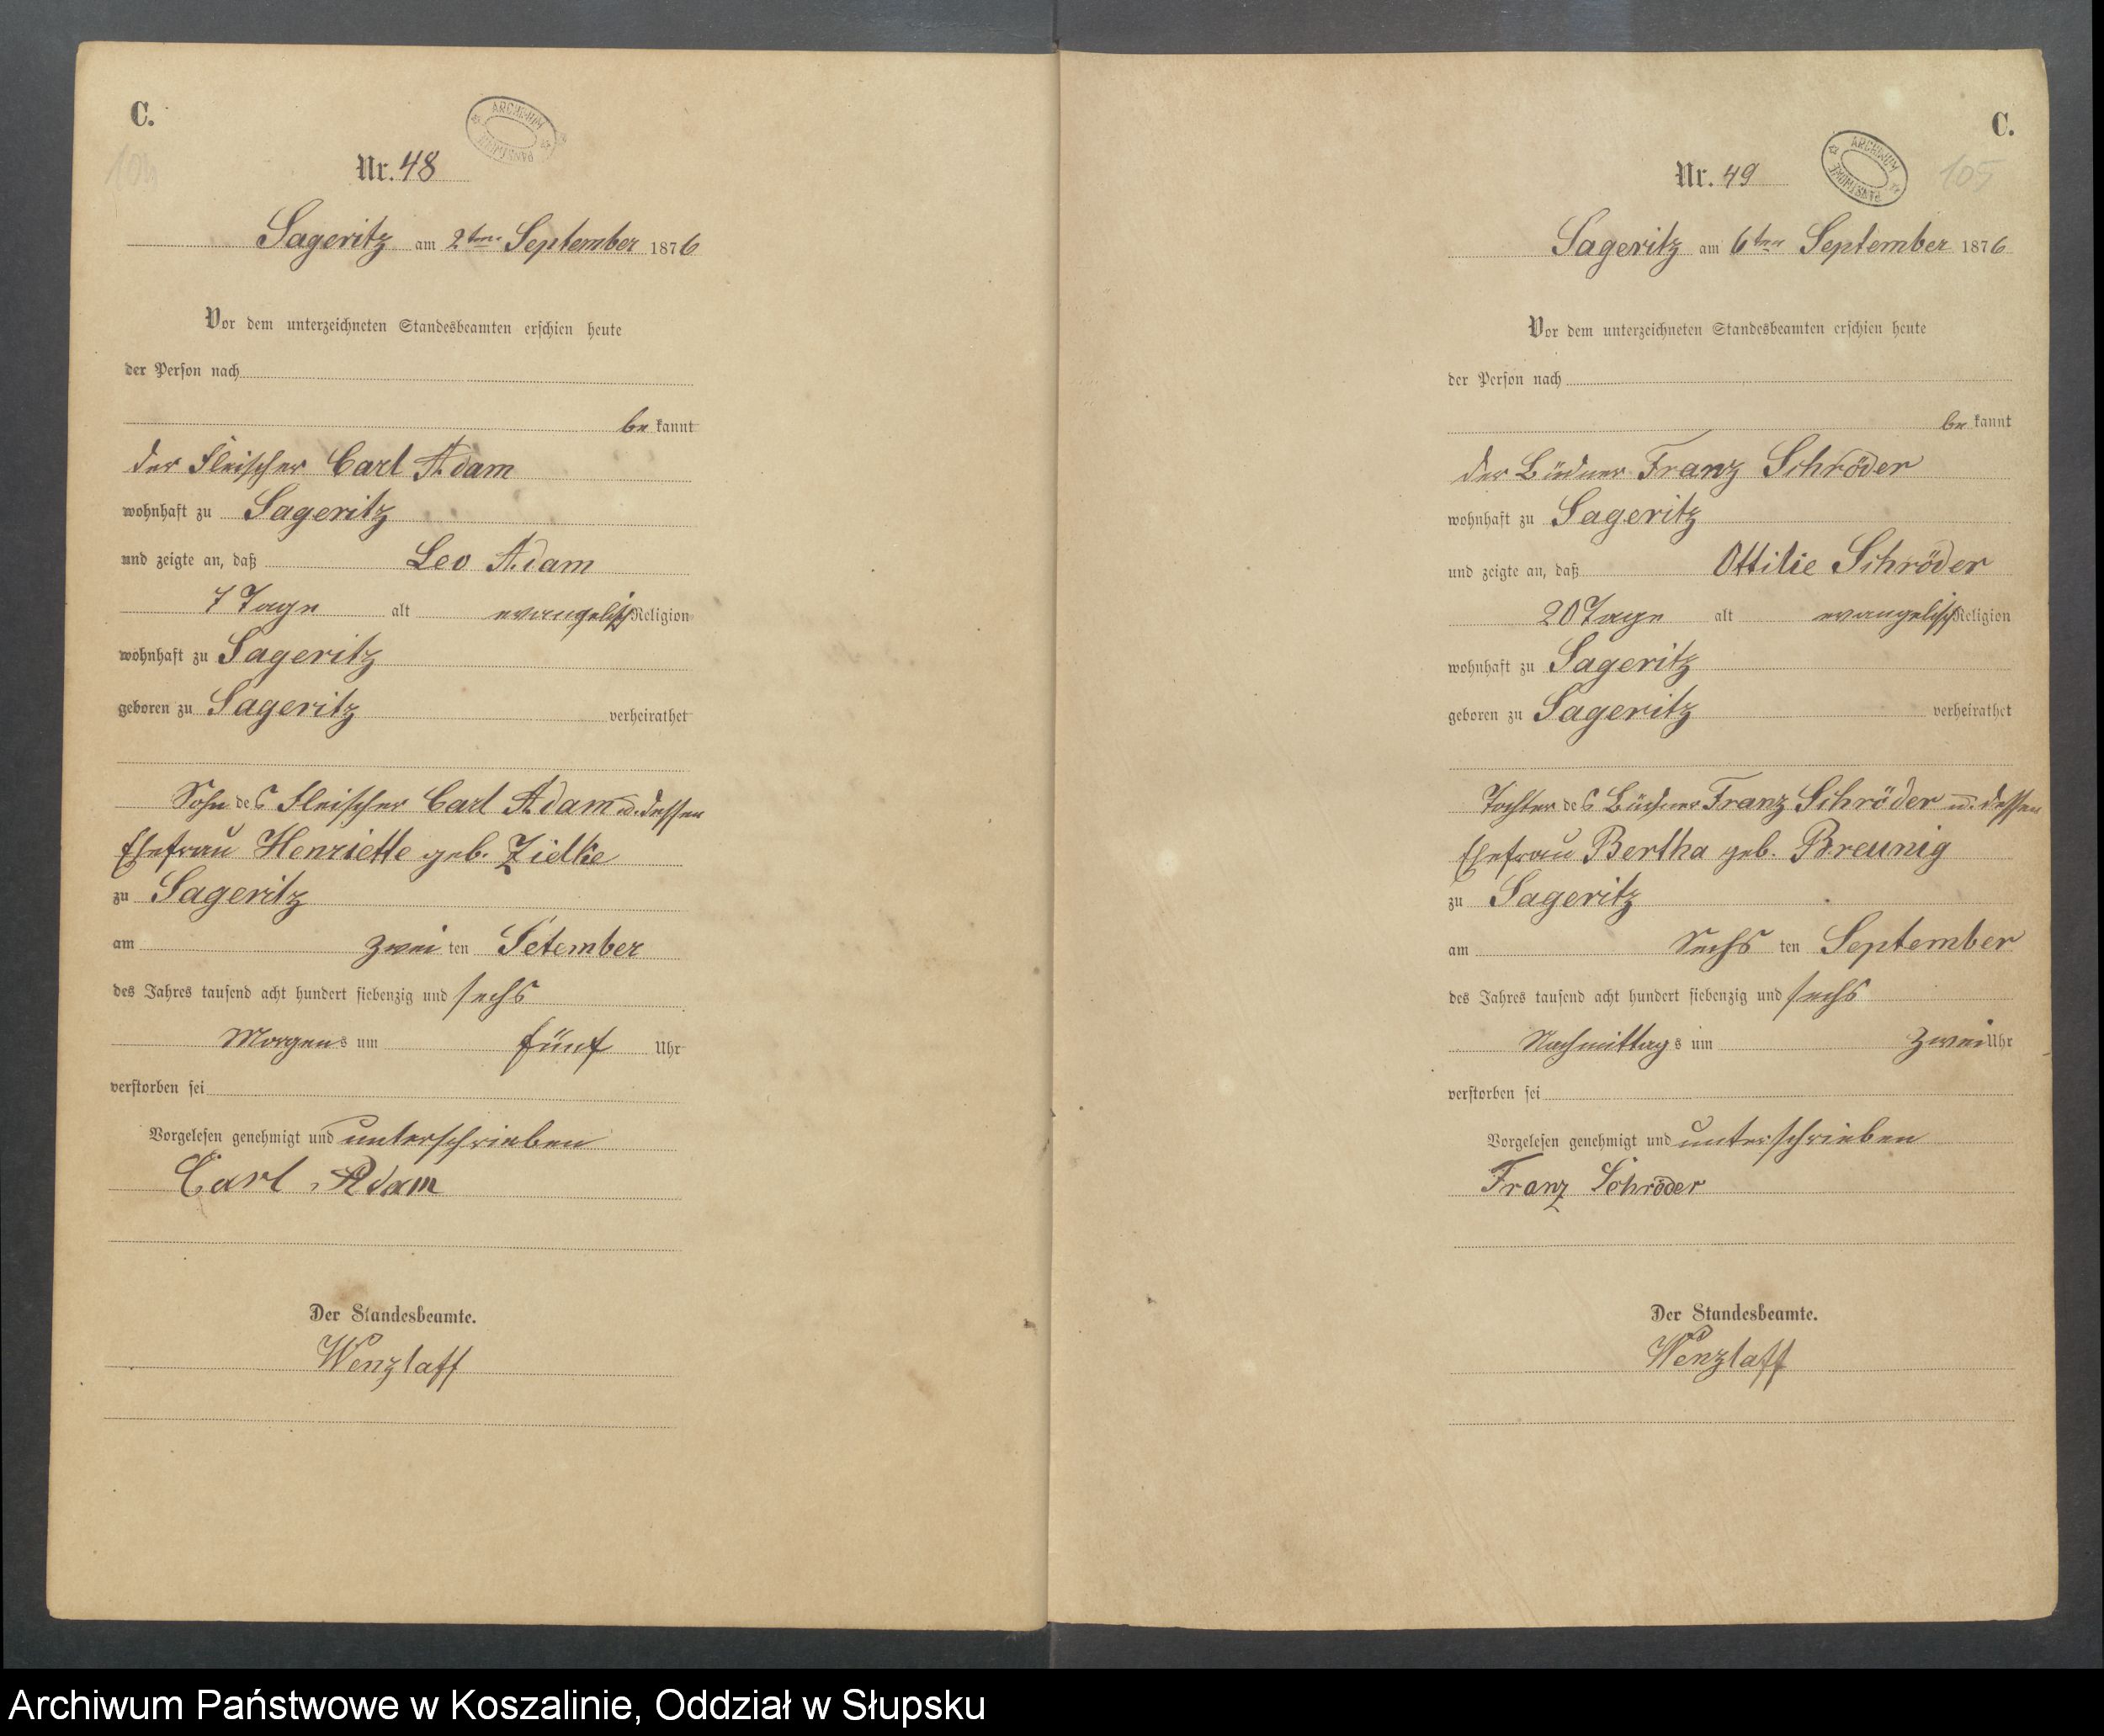 C.
104
ARCHIWUM PAŃSTWOWE
Nr. 48
Sageritz am 2ten September 1876
Vor dem unterzeichneten Standesbeamten erschien heute
der Person nach
be kannt
der Fleischer Carl Adam
wohnhaft zu Sageritz
und zeigte an, daß Leo Adam
7 Tage alt evangelisch Religion
wohnhaft zu Sageritz
geboren zu Sageritz verheirathet
Sohn des Fleischer Carl Adam u. dessen
Ehefrau Henriette geb. Zielke
zu Sageritz
am zwei ten Setember
des Jahres tausend acht hundert siebenzig und sechs
Morgens um fünf Uhr
verstorben sei
Vorgelesen genehmigt und unterschrieben
Carl Adam
Der Standesbeamte.
Wenzlaff
C.
105
ARCHIWUM PAŃSTWOWE
Nr. 49
Sageritz am 6ten September 1876
Vor dem unterzeichneten Standesbeamten erschien heute
der Person nach
be kannt
der Büdner Franz Schröder
wohnhaft zu Sageritz
und zeigte an, daß Ottilie Schröder
20 Tage alt evangelisch Religion
wohnhaft zu Sageritz
geboren zu Sageritz verheirathet
Tochter des Büdner Franz Schröder u. dessen
Ehefrau Bertha geb. Breunig
zu Sageritz
am Sechs ten September
des Jahres tausend acht hundert siebenzig und sechs
Nachmittags um zwei Uhr
verstorben sei
Vorgelesen genehmigt und unterschrieben
Franz Schröder
Der Standesbeamte.
Wenzlaff
Archiwum Państwowe w Koszalinie, Oddział w Słupsku